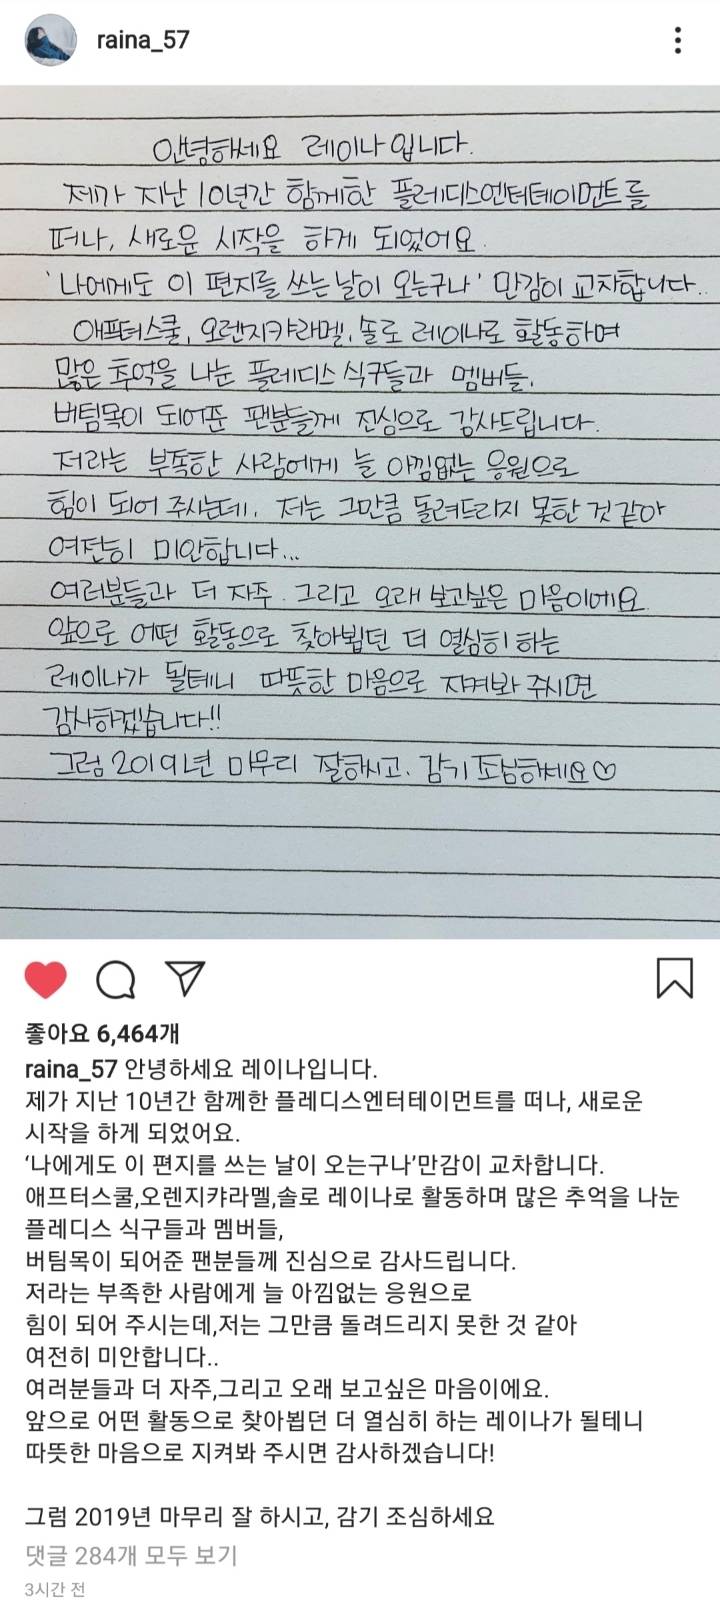 raina_57
안녕하세요 레이나입니다.
제가 지난 10년간 함께한 플레디스엔터테이먼트를
떠나, 새로운 시작을 하게 되었어요.
'나에게도 이 편지를 쓰는 날이 오는구나' 만감이 교차합니다..
애프터스쿨, 오렌지캬라멜, 솔로 레이나로 활동하며
많은 추억을 나눈 플레디스 식구들과 멤버들,
버팀목이 되어준 팬분들께 진심으로 감사드립니다.
저라는 부족한 사람에게 늘 아낌없는 응원으로
힘이 되어 주시는데, 저는 그만큼 돌려드리지 못한 것 같아
여전히 미안합니다...
여러분들과 더 자주. 그리고 오래 보고싶은 마음이에요.
앞으로 어떤 활동으로 찾아뵙던 더 열심히 하는
레이나가 될테니 따뜻한 마음으로 지켜봐 주시면
감사하겠습니다!!
그럼 2019년 마무리 잘하시고, 감기 조심하세요♡
좋아요 6,464개
raina_57 안녕하세요 레이나입니다.
제가 지난 10년간 함께한 플레디스엔터테이먼트를 떠나, 새로운
시작을 하게 되었어요.
‘나에게도 이 편지를 쓰는 날이 오는구나’만감이 교차합니다.
애프터스쿨,오렌지캬라멜,솔로 레이나로 활동하며 많은 추억을 나눈
플레디스 식구들과 멤버들,
버팀목이 되어준 팬분들께 진심으로 감사드립니다.
저라는 부족한 사람에게 늘 아낌없는 응원으로
힘이 되어 주시는데,저는 그만큼 돌려드리지 못한 것 같아
여전히 미안합니다..
여러분들과 더 자주,그리고 오래 보고싶은 마음이에요.
앞으로 어떤 활동으로 찾아뵙던 더 열심히 하는 레이나가 될테니
따뜻한 마음으로 지켜봐 주시면 감사하겠습니다!
그럼 2019년 마무리 잘 하시고, 감기 조심하세요
댓글 284개 모두 보기
3시간 전